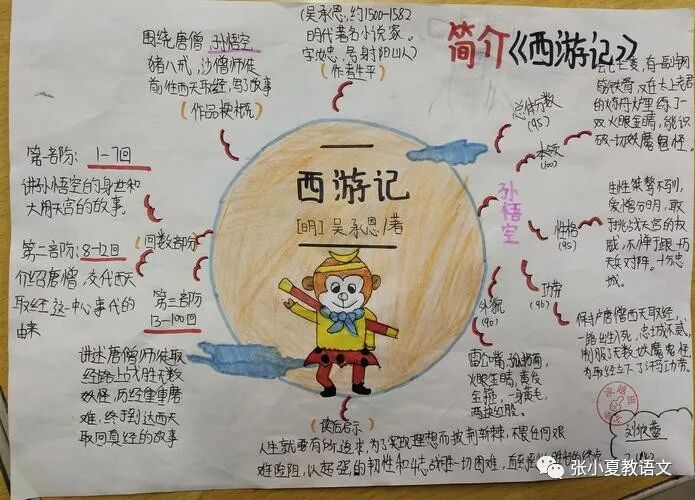 简介《西游记》
(吴承恩,约1500-1582
明代著名小说家。
字汝忠,号射阳山人)
(作者生平)
围绕唐僧,孙悟空
猪八戒,沙僧师徒
前往西天取经,写了故事
(作品梗概)
第一部份:1-7回
讲孙悟空的身世和
大闹天宫的故事。
(回数部分)
第二部份:8-12回
介绍唐僧,交代西天
取经这一中心事件的
由来
第三部分
13-100回
讲述唐僧师徒取
经路上战胜无数
妖怪,历经重重磨
难,终于到达西天
取回真经的故事
西游记
[明]吴承恩/著
孙悟空
总体分数
(95)
本领
(100)
有一副钢
筋铁骨,又在太上老君
的炼丹炉里炼了一
双火眼金睛,能识
破一切妖魔鬼怪。
性格
(95)
生性桀骜不驯,
爱憎分明,敢
于挑战天宫的权
威,不惮于跟一切
天兵对阵。十分忠
诚。
功劳
(96)
保护唐僧西天取经,
一路出生入死,忠诚不贰,
制服了无数妖魔鬼怪
为取经立下了汗马功劳
外貌
(90)
雷公嘴,孤拐面,
火眼金睛,黄发
金箍,一身黄毛
两块红股。
(读后启示)
人生就要有所追求,为了实现理想而披荆斩棘,不畏任何艰
难险阻,以超强的韧性和斗志战胜一切困难,直至
张小夏教语文